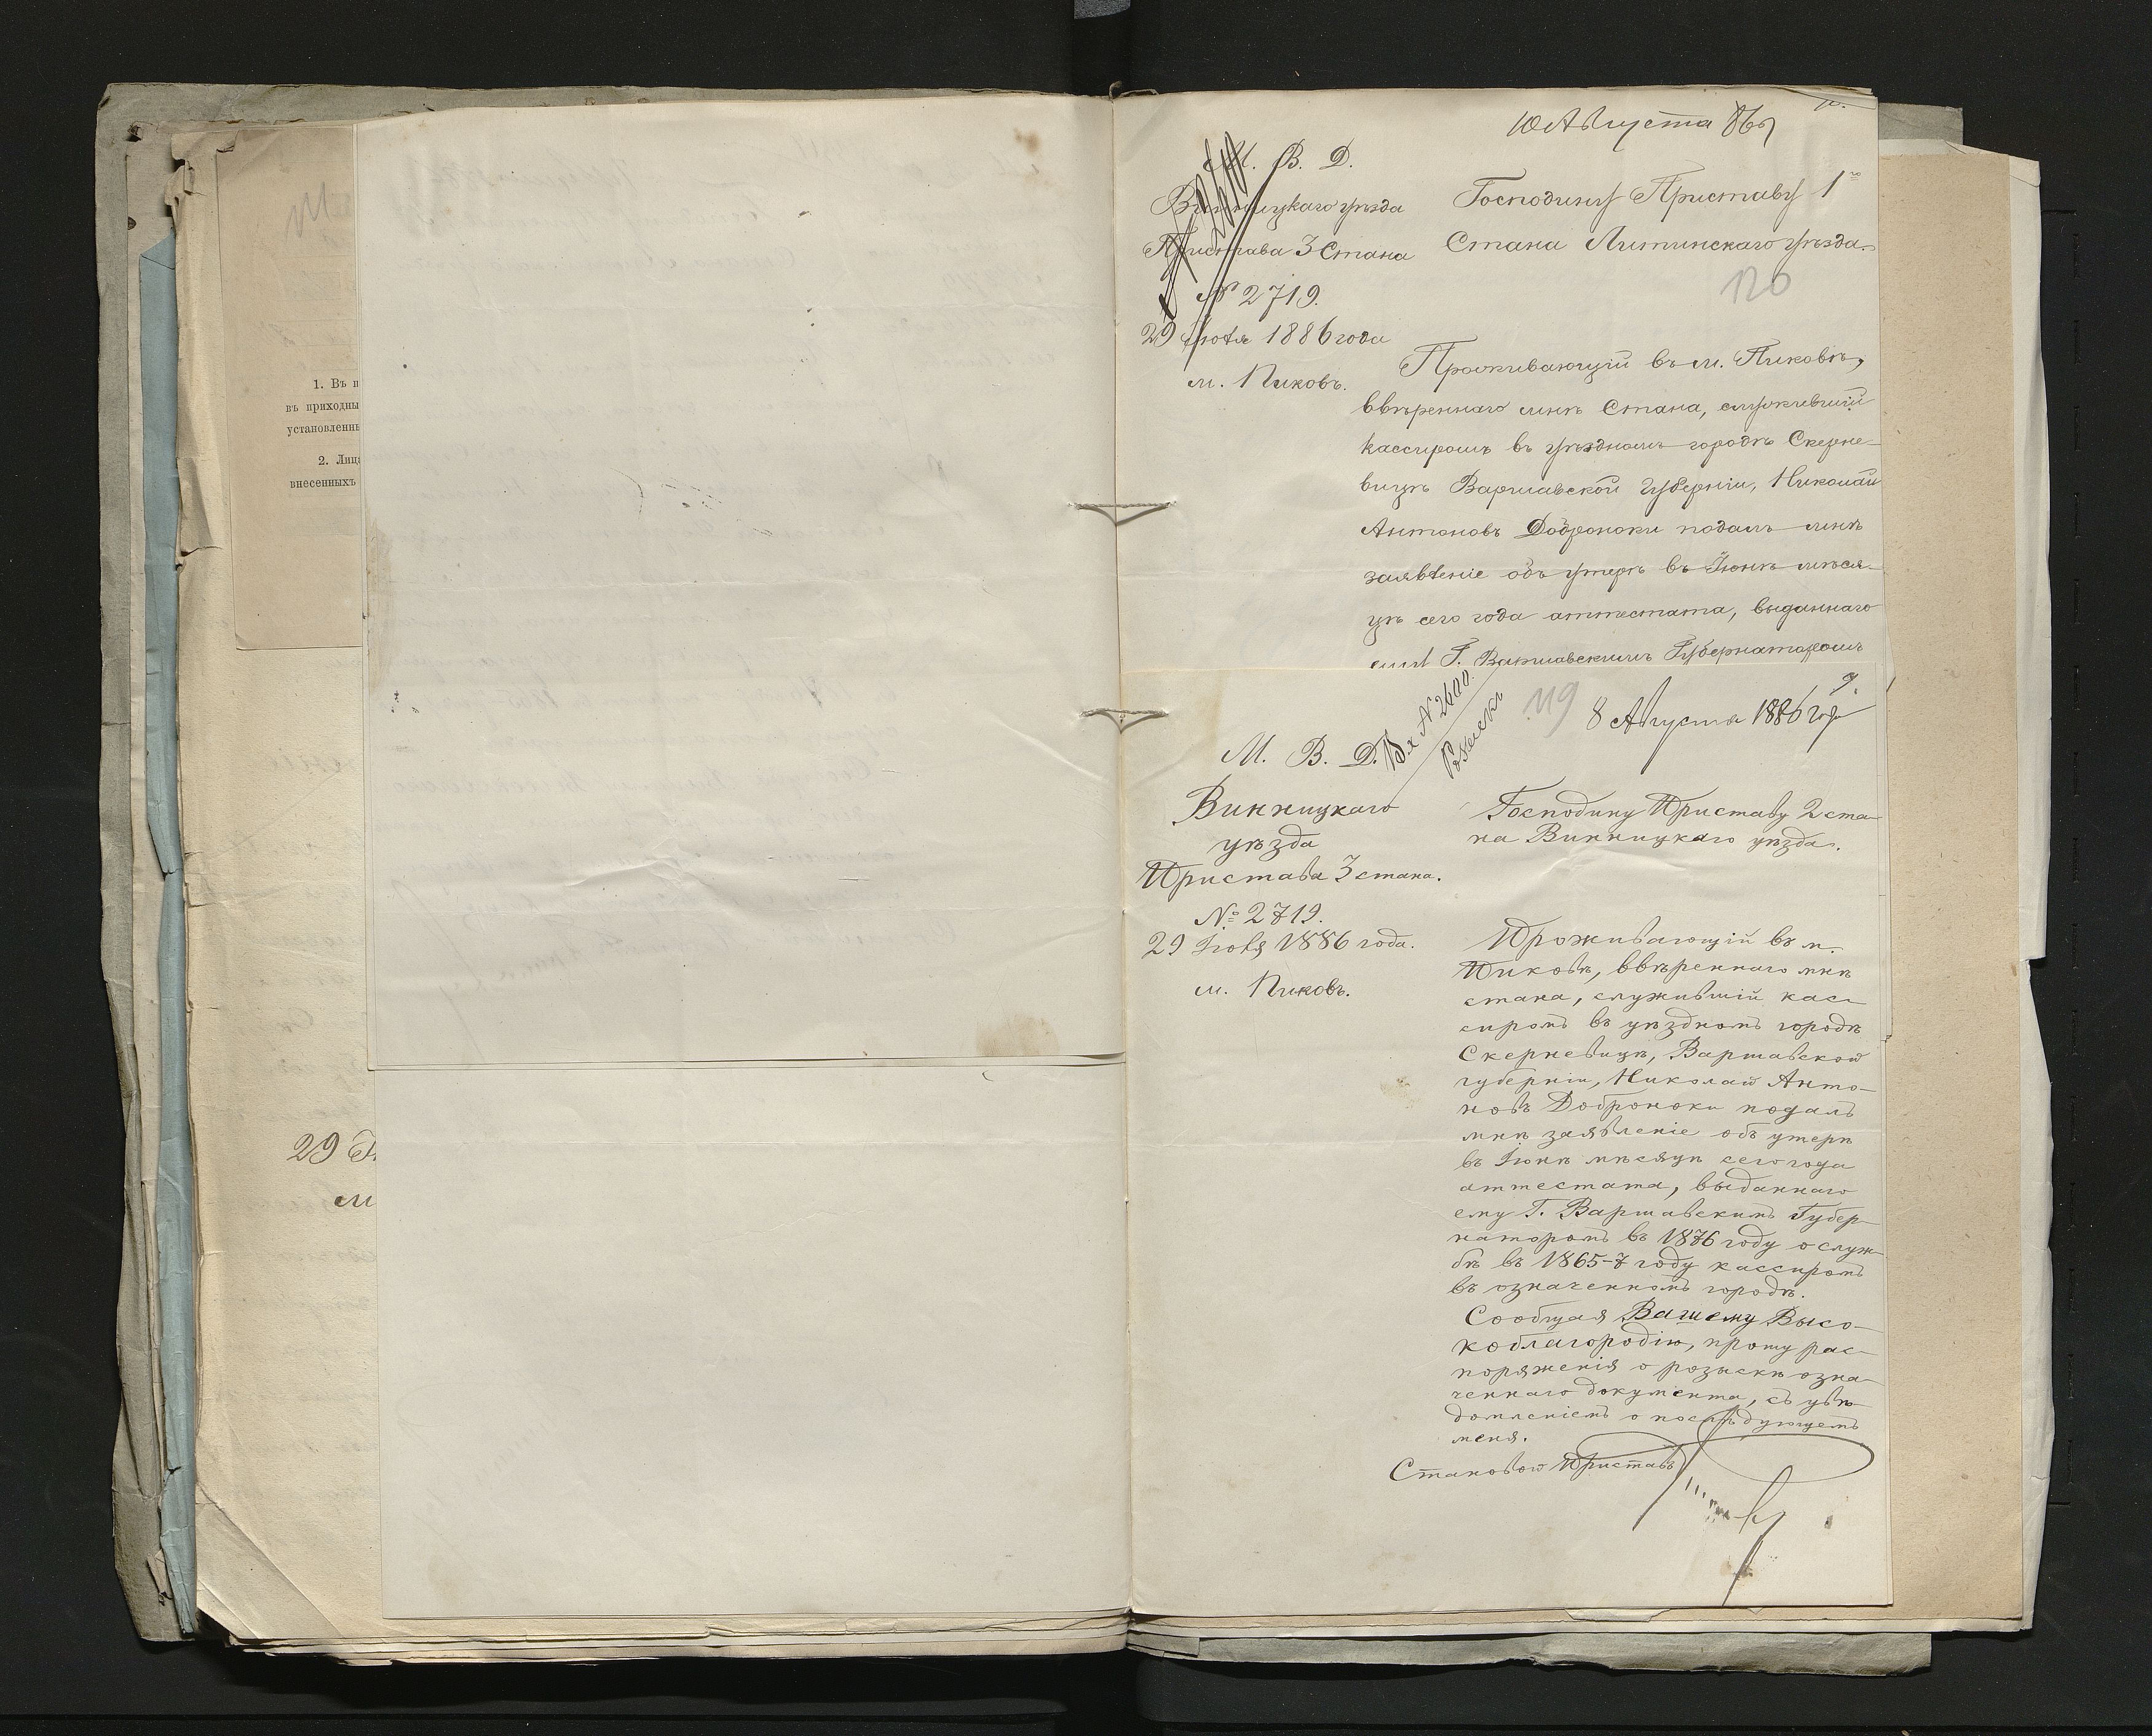 1. Въ п
въ приходны
установленнь
2. Лица
внесенныхъ
29 І
м
10 Августа 86 г
М. В. Д.
Винницкаго уѣзда
Пристава 3 Стана
№ 2719.
29 Іюля 1886 года
м. Пиковъ.
Господину Приставу 1го
Стана Литинскаго уѣзда.
120
Проживающій въ м. Пиковѣ,
ввѣреннаго мнѣ Стана, служившій
кассиромъ въ уѣздномъ городѣ Скерне-
вицѣ Варшавской Губерніи, Николай
Антоновъ Доброноки подалъ мнѣ
заявленіе объ утерѣ въ Іюнѣ мѣся-
цѣ сего года аттестата, выданнаго
ему Г. Варшавскимъ Губернаторомъ
9.
Вх № 2600.
Розыскъ
119
8 Августа 1886 года
М. В. Д.
Винницкаго
уѣзда
Пристава 3 стана.
№ 2719.
29 Іюля 1886 года.
м. Пиковъ.
Господину Приставу 2 ста-
на Винницкаго уѣзда.
Проживающій въ м.
Пиковѣ, ввѣреннаго мнѣ
стана, служившій кас-
сиромъ въ уѣздномъ городѣ
Скерневицѣ, Варшавской
губерніи, Николай Анто-
новъ Доброноки подалъ
мнѣ заявленіе объ утерѣ
въ Іюнѣ мѣсяцѣ сего года
аттестата, выданнаго
ему Г. Варшавскимъ Губер-
наторомъ въ 1876 году о служ-
бѣ въ 1865-7 году кассиромъ
въ означенномъ городѣ.
Сообщая Вашему Высо-
коблагородію, прошу рас-
поряженія о розыскѣ озна-
ченнаго документа, съ увѣ-
домленіемъ о послѣдующемъ
меня.
Становой Приставъ